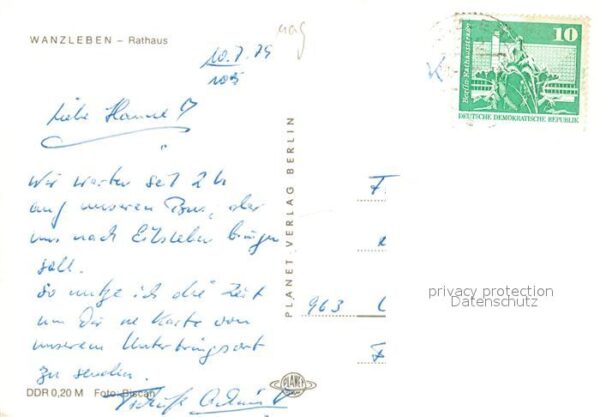 WANZLEBEN – Rathaus
10.7.79
Liebe Hanne!
Wir warten seit 2 h
auf unseren Bus, der
uns nach Eilsleben bringen
soll.
So nutze ich die Zeit
um Dir ne Karte von
unserem Unterbringsort
zu senden.
DDR 0,20 M Foto: Biscan
PLANET VERLAG BERLIN
PLANET
10
Berlin-Rathausstraße
DEUTSCHE DEMOKRATISCHE REPUBLIK
F.
privacy protection
Datenschutz
963
F